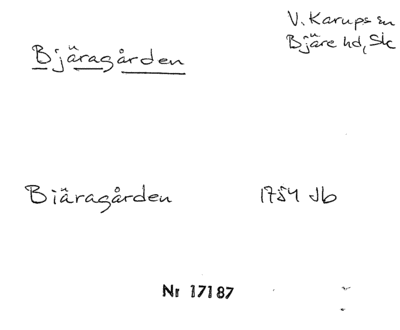 V. Karups sn
Bjäre hd, Sk
Bjäragården
Biäragården 1754 Jb
Nr 17187